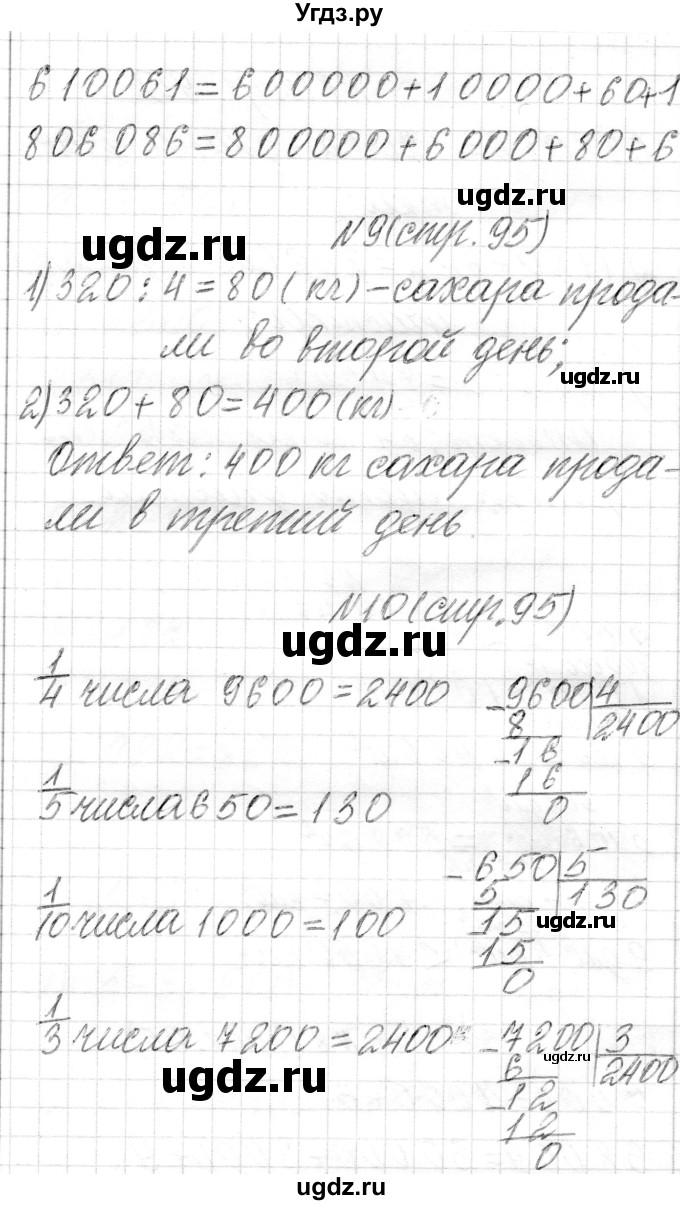 Угдз.ру
610061=600000+10000+60+1
806 086=800000+6000+80+6
ugdz.ru
№9(стр.95)
ugdz.ru
1) 320:4=80(кг)-сахара прода-
ли во второй день;
ugdz.ru
2) 320+80=400(кг)
Ответ: 400 кг сахара прода-
ли в третий день
№10(стр.95)
ugdz.ru
1/4 числа 9600=2400
-9600 4
8 2400
-16
16
0
1/5 числа 650=130
-650 5
5 130
15
15
0
ugdz.ru
1/10 числа 1000=100
1/3 числа 7200=2400
-7200 3
6 2400
-12
12
0
ugdz.ru
ugdz.ru
ugdz.ru